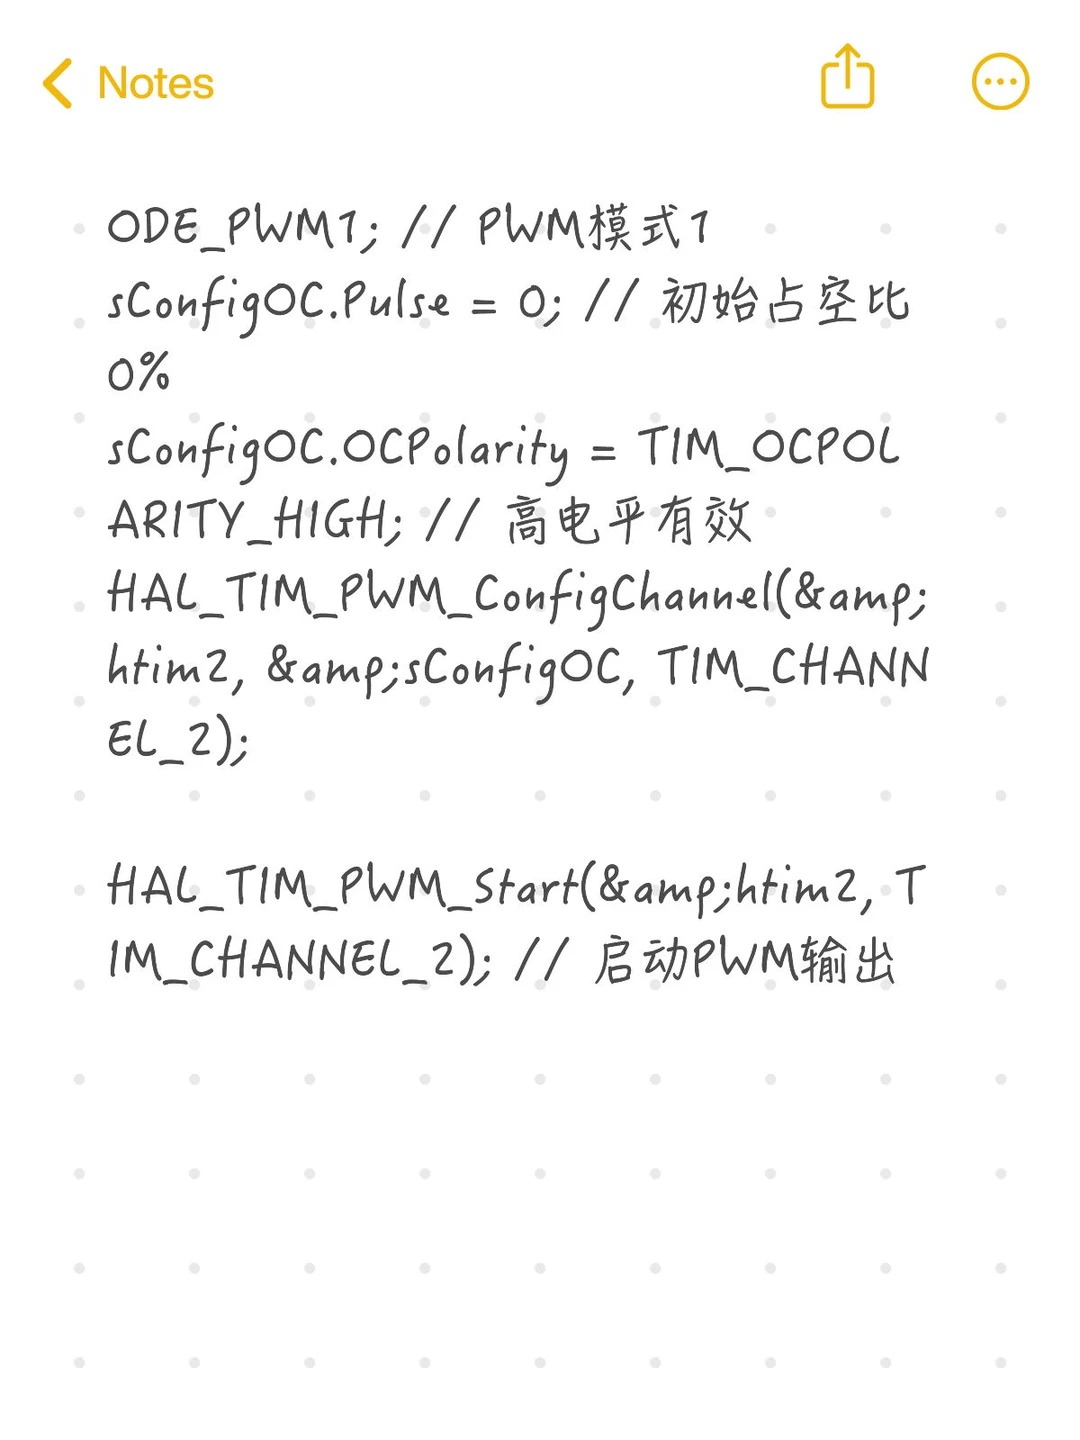 Notes
ODE_PWM1; // PWM模式1
sConfigOC.Pulse = 0; // 初始占空比
0%
sConfigOC.OCPolarity = TIM_OCPOL
ARITY_HIGH; // 高电平有效
HAL_TIM_PWM_ConfigChannel(&amp;
htim2, &amp;sConfigOC, TIM_CHANN
EL_2);
HAL_TIM_PWM_Start(&amp;htim2, T
IM_CHANNEL_2); // 启动PWM输出